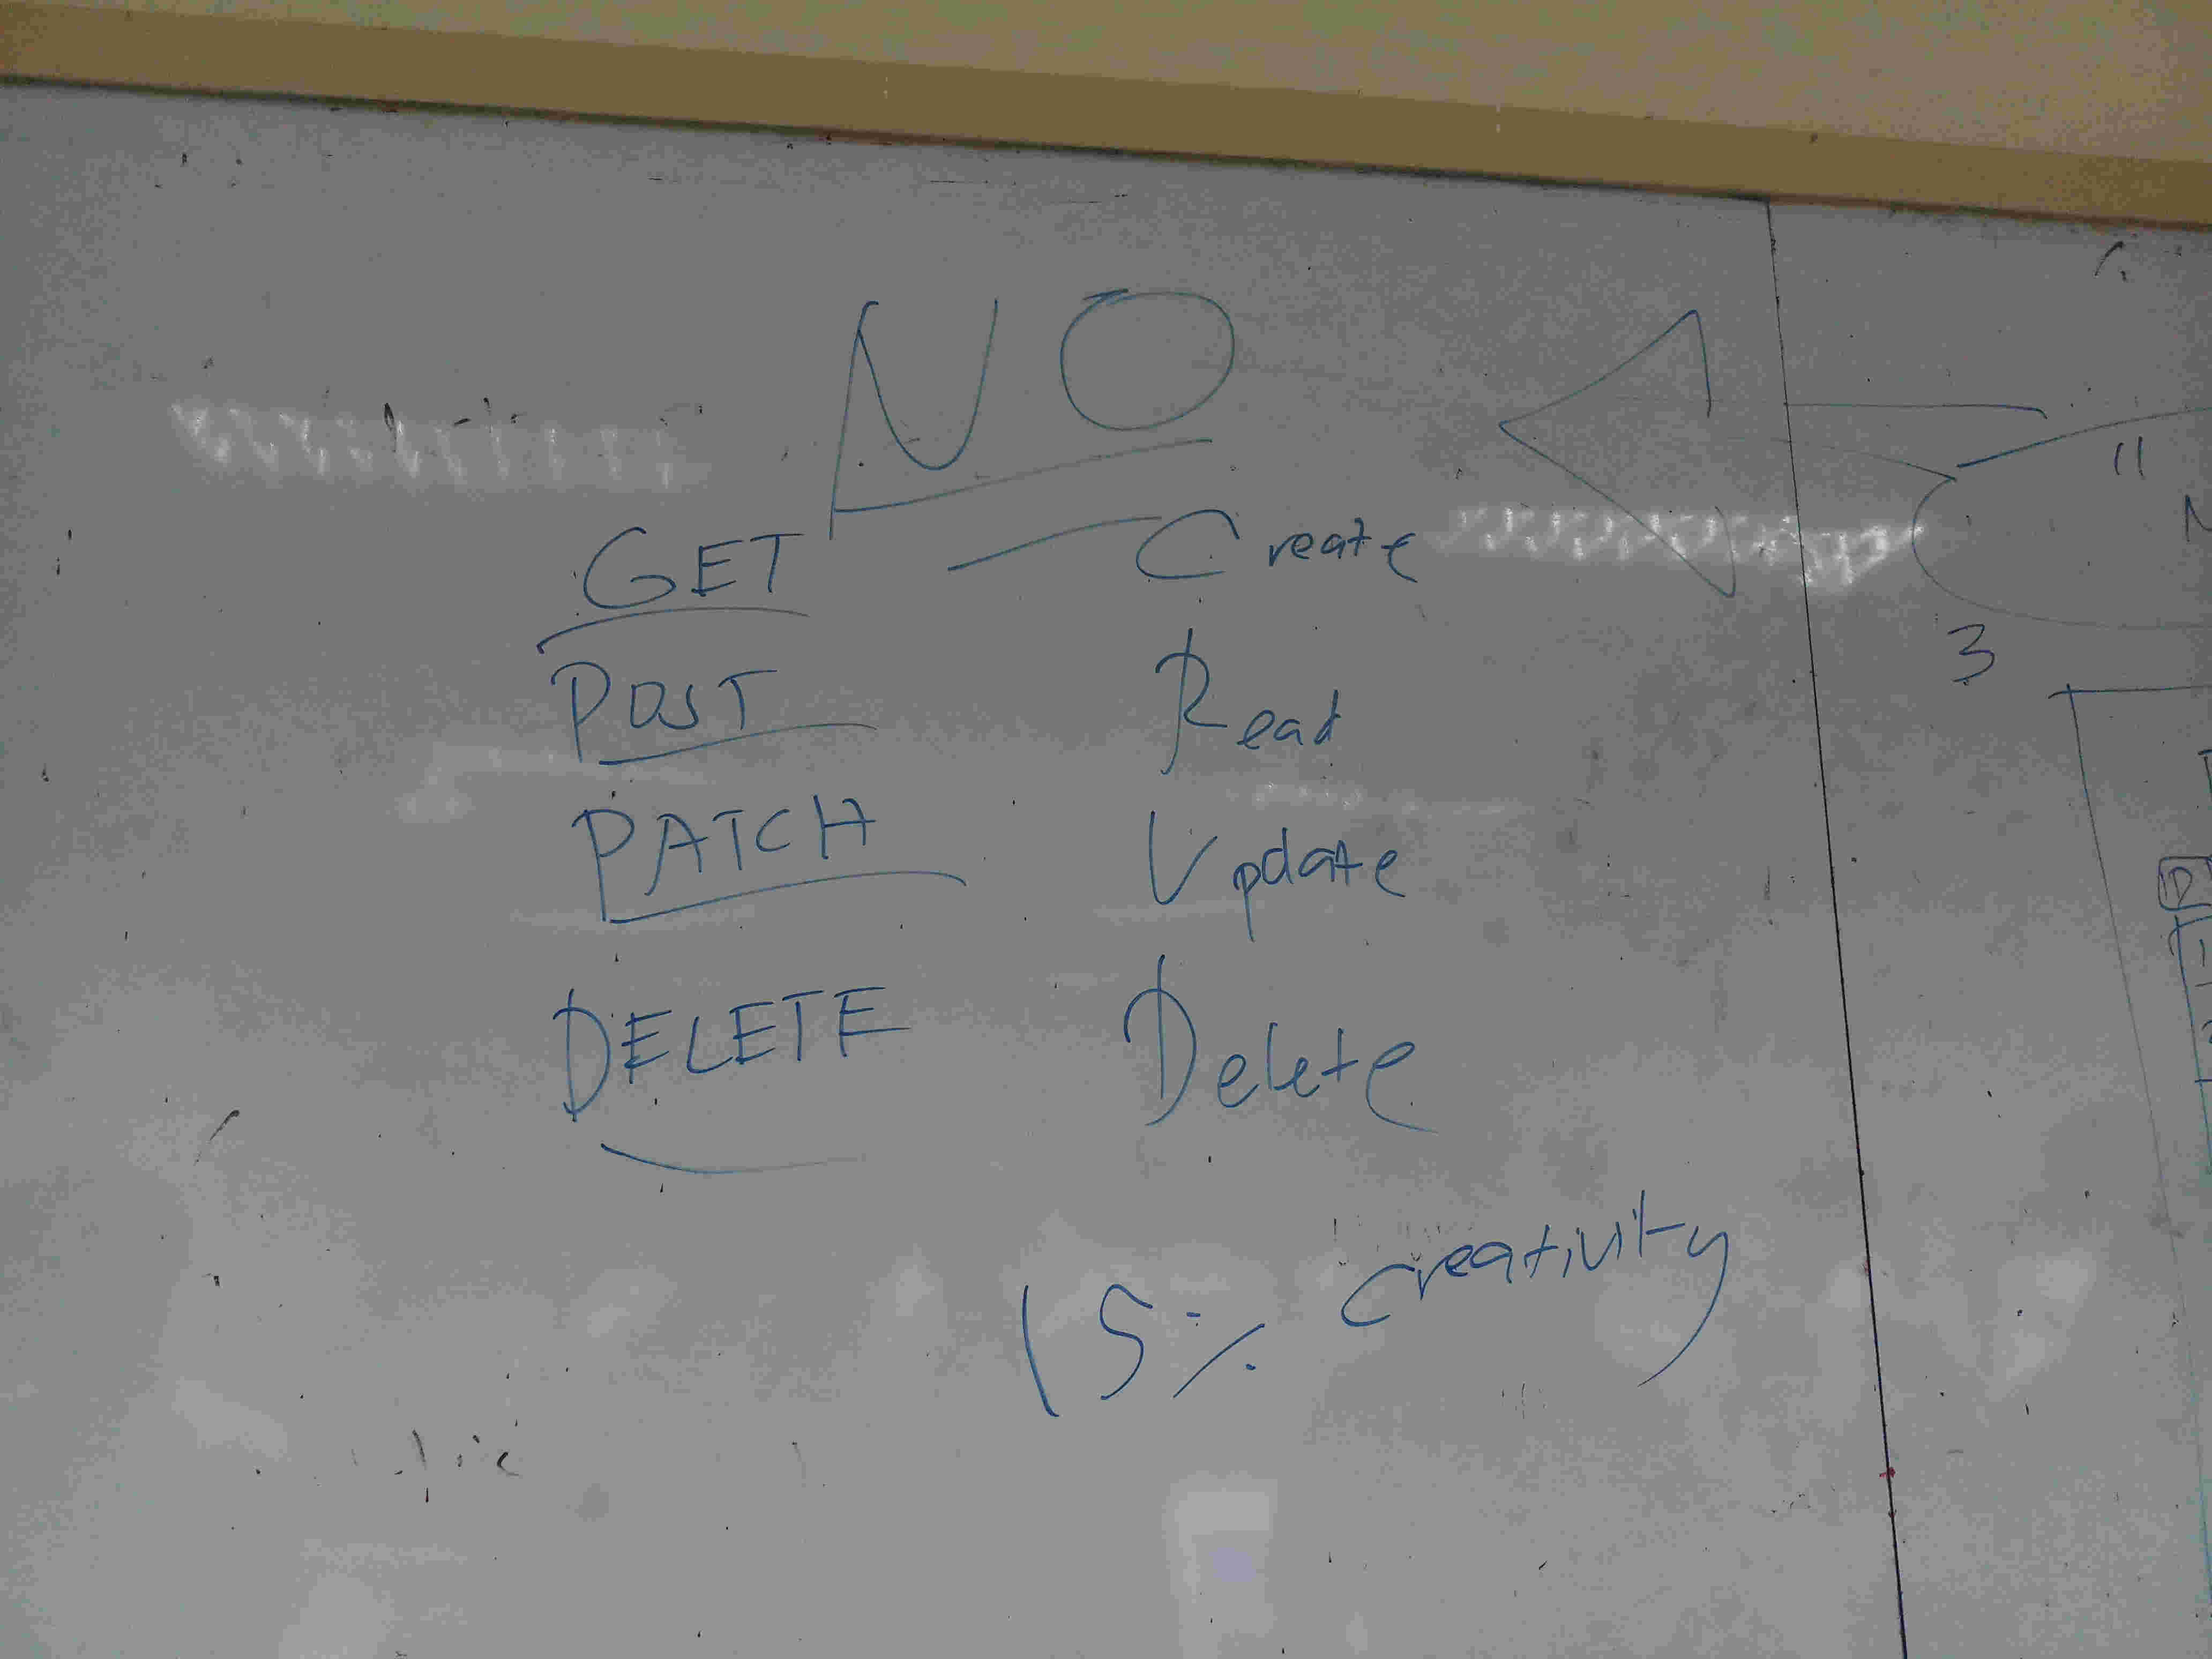 NO
GET Create
POST Read
PATCH Update
DELETE Delete
15% Creativity
11
3